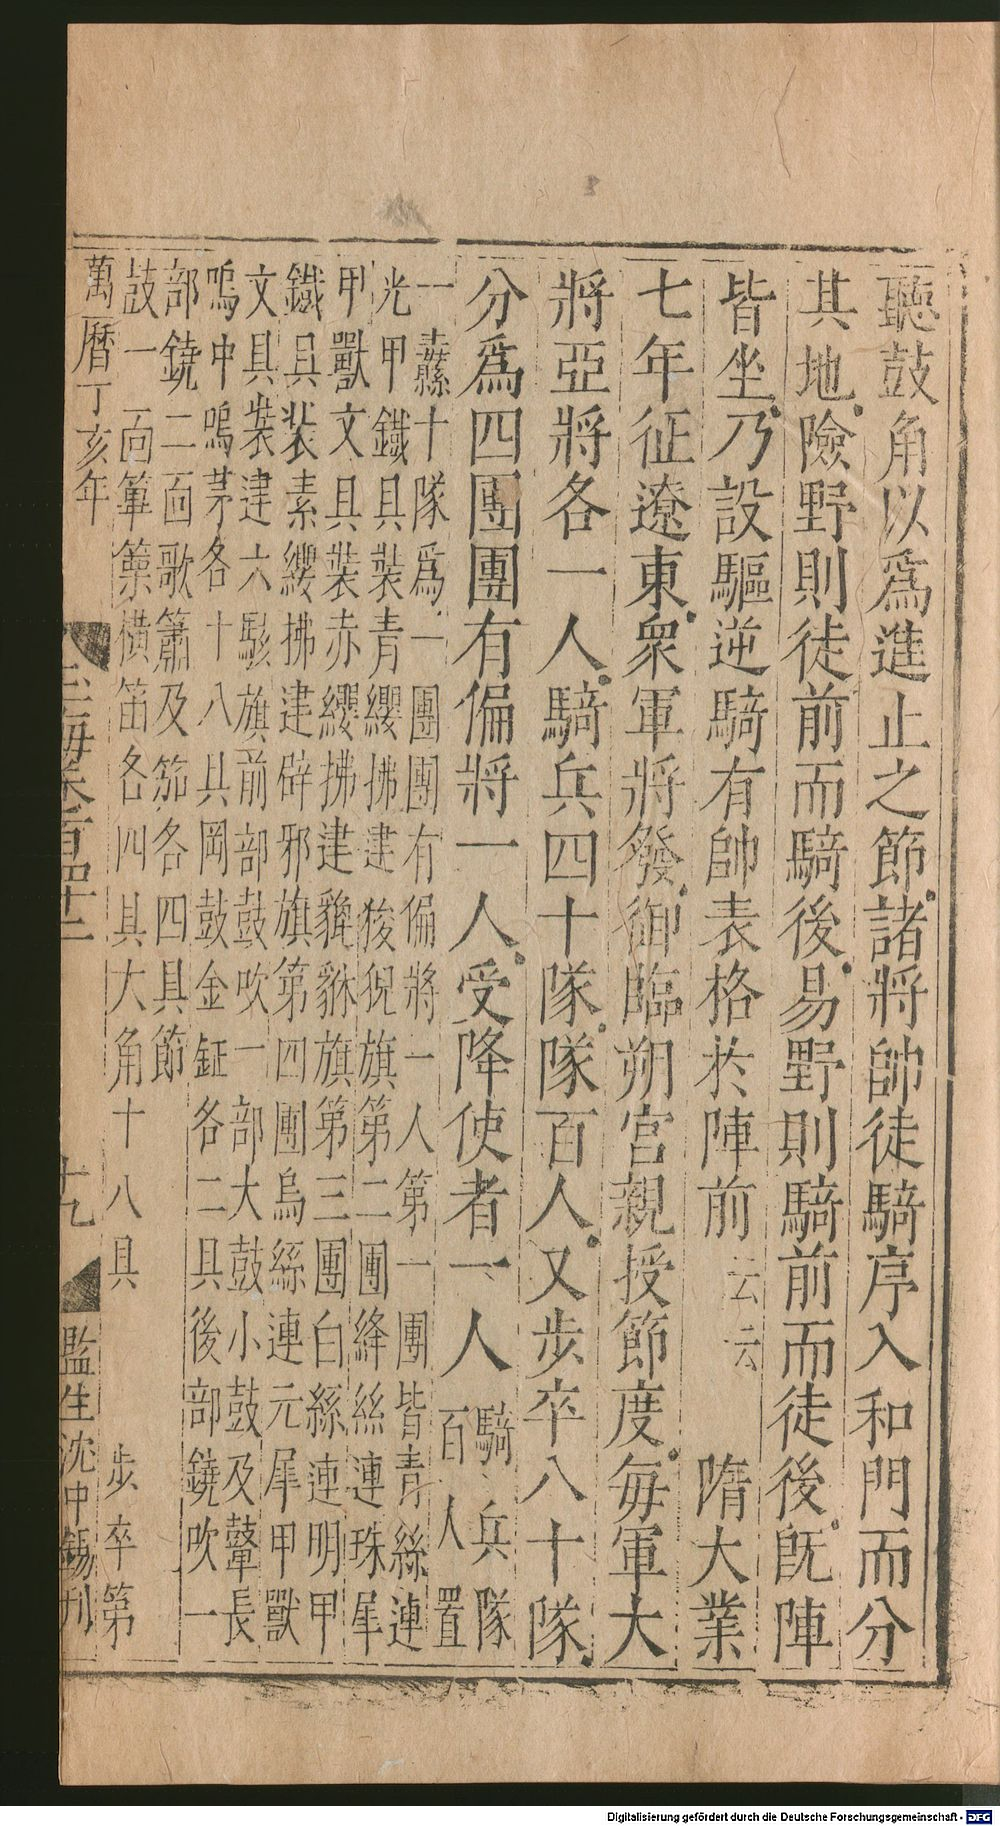 聽鼓角以爲進止之節諸將帥徒騎序入和門而分
其地險野則徒前而騎後易野則騎前而徒後旣陣
皆坐乃設驅逆騎有帥表格於陣前云云　隋大業
七年征遼東衆軍將發御臨朔宮親授節度每軍大
將亞將各一人騎兵四十隊隊百人又步卒八十隊
分爲四團團有偏將一人受降使者一人騎兵隊
百人置
一纛十隊爲一團團有偏將一人第一團皆青絲連
光甲鐵具裝青纓拂建狻猊旗第二團絳絲連珠犀
甲獸文具裝赤纓拂建貔貅旗第三團白絲連明甲
鐵具裝素纓拂建辟邪旗第四團烏絲連元犀甲獸
文具裝建六駁旗前部鼓吹一部大鼓小鼓及鼙長
鳴中鳴等各十八具岡鼓金鉦各二具後部鐃吹一
部鐃二面歌簫及笳各四具節
鼓一面篳篥橫笛各四具大角十八具　步卒第
萬曆丁亥年
玉海卷百四十一　十九　監生沈中錫刊
Digitalisierung gefördert durch die Deutsche Forschungsgemeinschaft - DFG